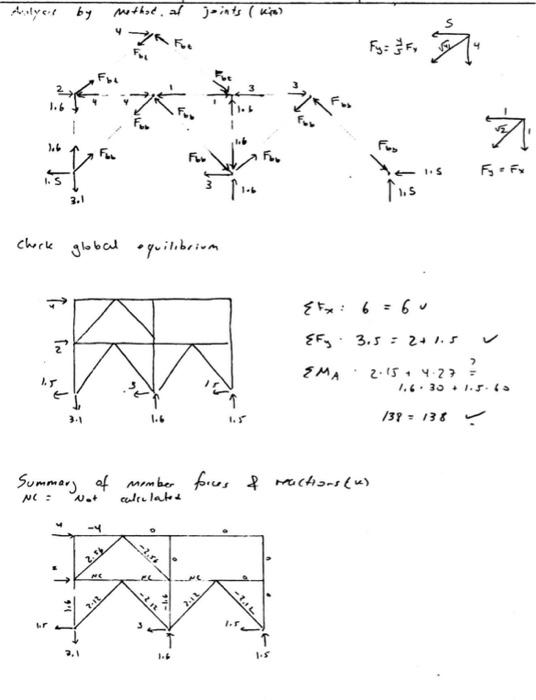 Analysis by Method of joints (kips)
5
4
√41
Fy = 4/5 Fx
4
Fbt
Fbt
2
Fbt
4
4
1
Fbt
1
3
3
1.6
Fbb
Fbb
1.6
Fbb
Fbb
1
√2
1
Fy = Fx
1.6
Fbb
1.5
3.1
1.6
Fbb
Fbb
3
1.6
Fbb
1.5
1.5
Check global equilibrium
4
2
1.5
3.1
3
1.6
1.5
1.5
ΣFx : 6 = 6 ✓
ΣFy : 3.5 = 2+1.5 ✓
ΣMA : 2·15 + 4·27 ?=
1.6·30 + 1.5·60
138 = 138 ✓
Summary of member forces & reactions (k)
NC = Not calculated
4
-4
0
0
2.56
-2.56
0
0
NC
NC
NC
0
1.6
2.12
-2.12
-1.6
2.12
-2.12
0
1.5
3
1.5
3.1
1.6
1.5